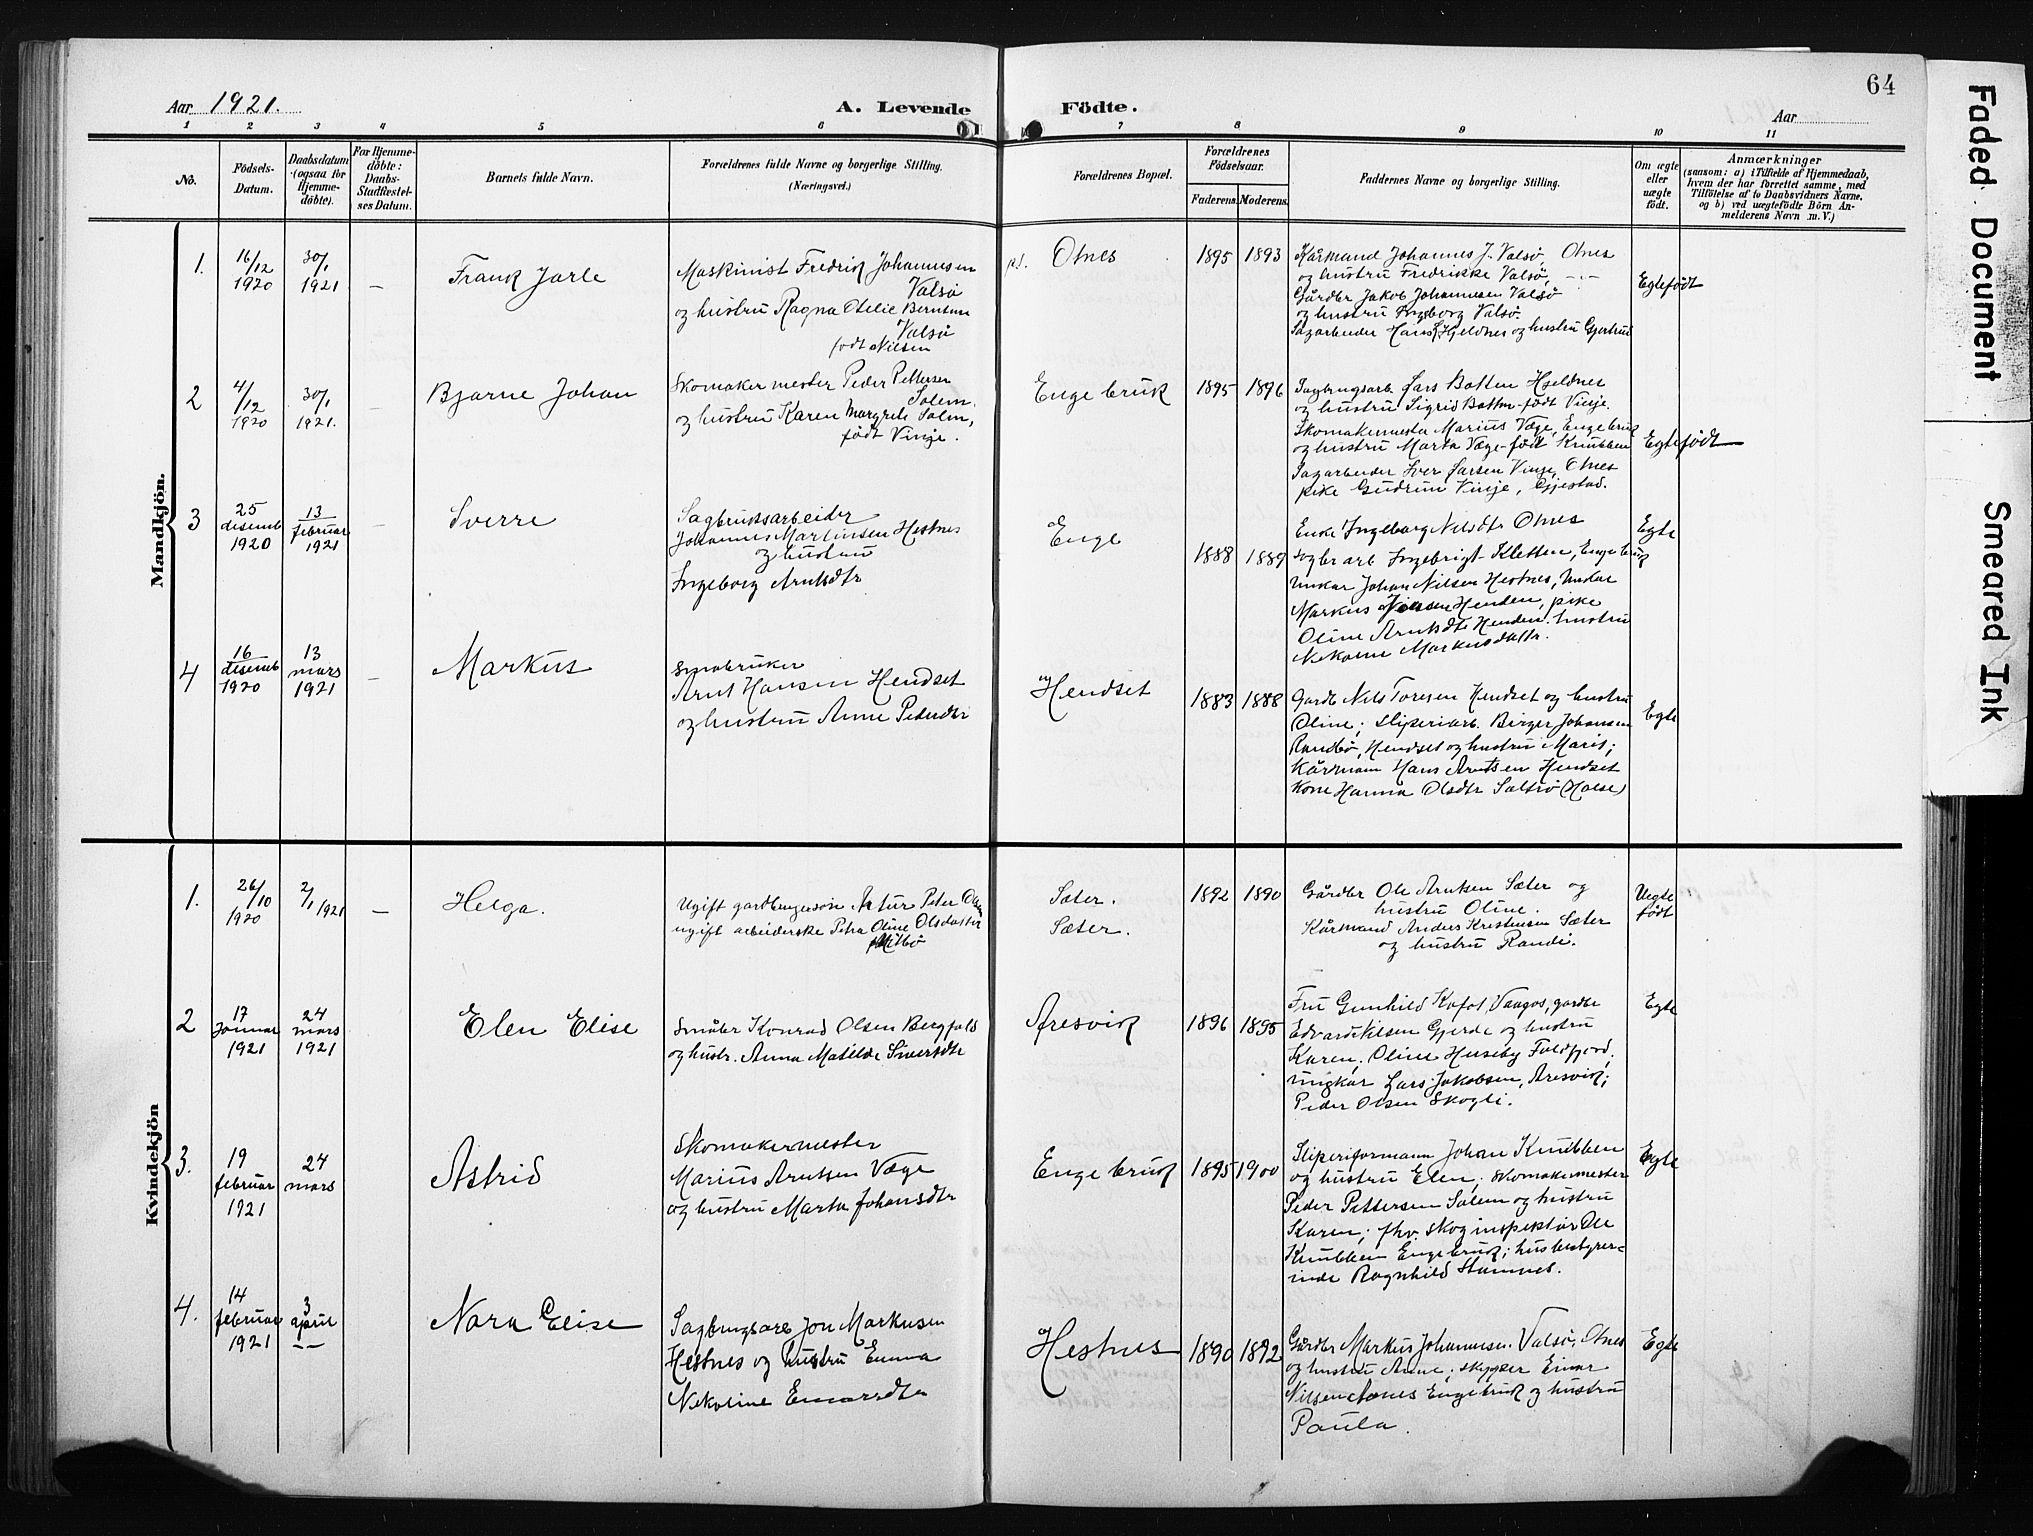 64
Aar 1921.
A. Levende Födte.
Aar
1 2 3 4 5 6 7 8 9 10 11
No.
Födsels-
Datum.
Daabsdatum
(ogsaa for
Hjemme-
döbte).
For Hjemme-
döbte:
Daabs-
Stadfæstel-
ses Datum.
Barnets fulde Navn.
Forældrenes fulde Navne og borgerlige Stilling.
(Næringsvei.)
Forældrenes Bopæl.
Forældrenes
Födselsaar.
Faderens. Moderens.
Faddernes Navne og borgerlige Stilling.
Om ægte
eller
uægte
födt.
Anmærkninger
(saasom: a) i Tilfælde af Hjemmedaab,
hvem der har forrettet samme, med
Tilföielse af to Daabsvidners Navne.
og b) ved uægtefödte Börn An-
melderens Navn m. V.)
Mandkjön.
1.
16/12
1920
30/1
1921
—
Frank Jarle
Maskinist Fredrik Johannesen
Valsø
og hustru Ragna Otelie Berntine
Valsø
født Nilsen
Otnes
1895 1893
Kårmand Johannes J. Valsø, Otnes
og hustru Fredrikke Valsø, -..-
Gårdbr Jakob Johannesen Valsø
og hustru Ingeborg Valsø
Sagarbeider Hans Hjeldnes og hustru Gjertrud
Egtefødt
2
4/12
1920
30/1
1921.
—
Bjarne Johan
Skomakermester Peder Pettersen
Solem.
og hustru Karen Margrete Solem,
født Vinje.
Enge bruk
1895 1896
Sagbrugsarb. Lars Botten Hjeldnes
og hustru Sigrid Botten født Vinje.
Skomakermester Marius Væge, Engebruk
og hustru Marta Væge født Knubben
Sagarbeider Iver Larsen Vinje, Otnes
pike Gudrun Vinje, Gjestad.
Egtefødt
3
25
desemb
1920
13
februar
1921
—
Sverre
Sagbruksarbeider
Johannes Martinsen Hestnes
og hustru
Ingeborg Arntsdtr
Enge
1888 1889
Enke Ingeborg Nilsdtr Otnes
sagbr arb Ingebrigt Kletten, Enge bruk
unkar Johan Nilsen Hestnes, unkar
Markus Henden, pike
Oline Arntsdtr Henden. hustru
Nekoline Markusdattr.
Egte
4
16
desemb
1920
13
mars
1921
—
Markus
Smabruker
Arnt Hansen Hendset
og hustru Anne Pedersdtr
Hendset
1883 1888
Gardb Nils Toresen Hendset og hustru
Oline; sliperiarb. Birger Johansen
Randbø, Hendset og hustru Marit;
Kårmann Hans Arntsen Hendset
Kone Hanna Olsdtr Saltrø (Halse)
Egte
Kvindekjön
1.
26/10
1920
2/1 1921
—
Helga.
Ugift gardbrugersøn Artur Peter
ugift arbeiderske Petra Oline Olsdatter
Sæter.
Sæter.
1892 1890
Gårdbr Ole Arntsen Sæter og
hustru Oline.
Kårmand Anders Kristensen Sæter
og hustru Randi.
Uegte
født
2
17
Januar
1921
24
mars
1921
Elen Elise
Småbr Konrad Olsen Bergfald
og hustr. Anna Matilde Sivertsdtr
Aresvik
1896 1895
Fru Gunhild Kofot, Vaagos, gardbr
Edvard Nilsen Gjerde og hustru
Karen, Oline Huseby Foldfjord,
ungkar Lars Jakobsen, Aresvik;
Peder Olsen Skogli.
Egte
3.
19
februar
1921
24
mars
Astrid
Skomakermester
Marius Arntsen Væge
og hustru Marta Johansdtr
Enge bruk
1895 1900
Sliperiformann Johan Knubben
og hustru Elen; skomakermester
Peder Pettersen Solem og hustru
Karen; fhv. skoginspektør Ole
Knubben Engebruk; husbestyrer-
inde Ragnhild Stamnes.
Egte
4.
14
februar
1921
3
april
——
Nora Elise
Sagbrugsarb Jon Markusen
Hestnes og hustru Emma
Nekoline Einarsdtr
Hestnes
1890 1892
Gårdbr Markus Johannesen Valsø, Otnes
og hustru Anne; skypper Einar
Nilsen Aanes Engebruk og hustru
Paula.
Egte
Faded Document
Smeared Ink